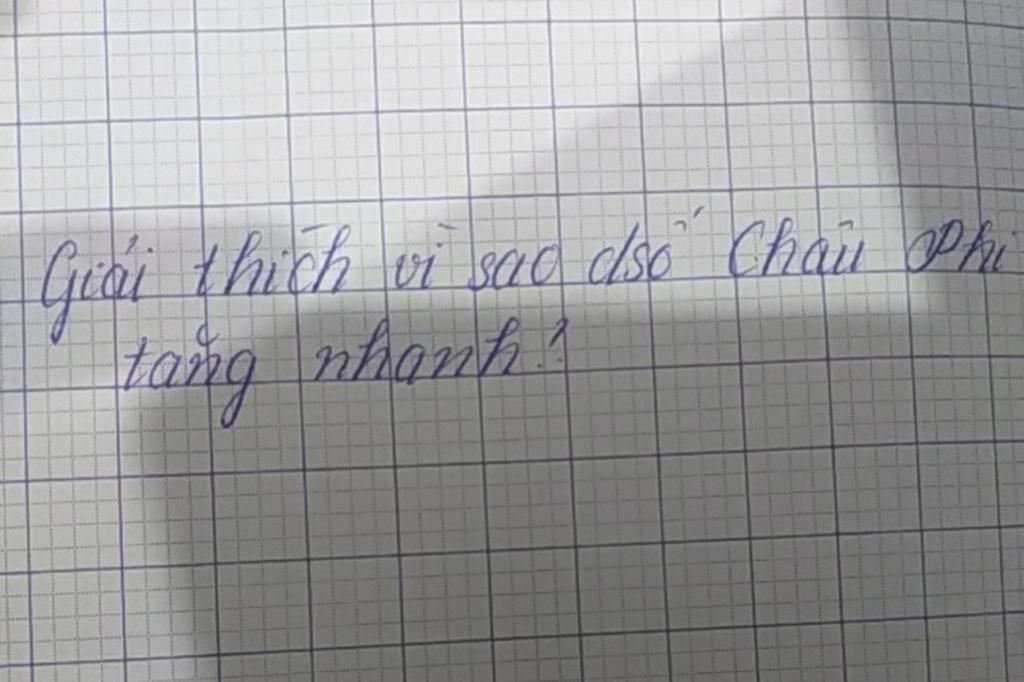 Giải thích vì sao dsố Châu Phi
tăng nhanh?